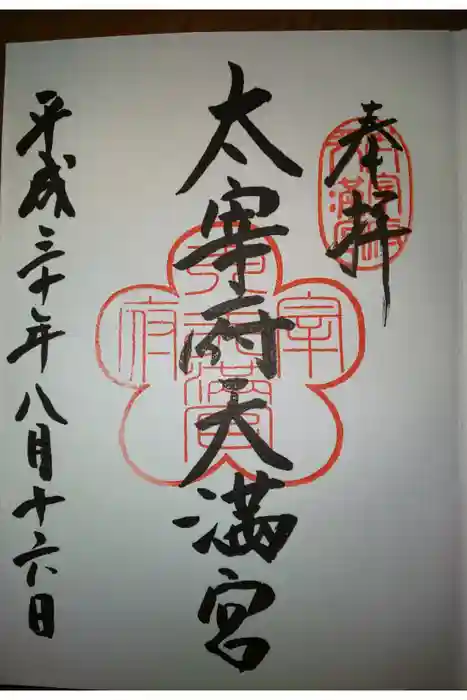 奉拝
太宰府天満宮
平成三十年八月十六日